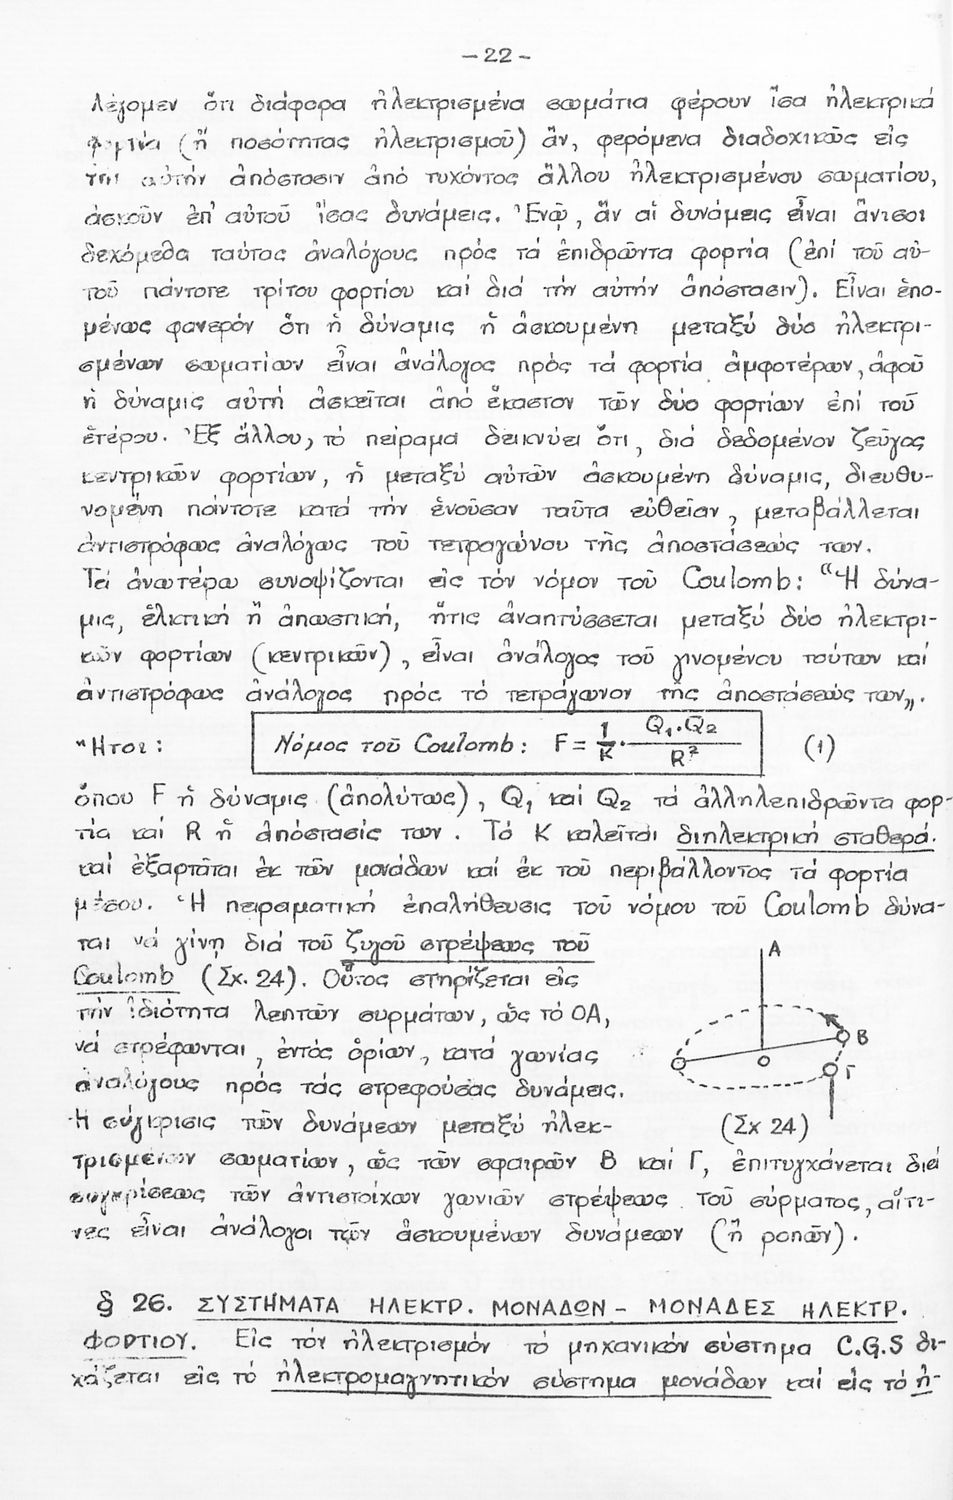 -22-
λέγομεν ὅτι διάφορα ἠλεκτρισμένα σωμάτια φέρουν ἴσα ἠλεκτρικά
φορτία (ἤ ποσότητας ἠλεκτρισμοῦ) ἄν, φερόμενα διαδοχικῶς εἰς
τήν αὐτήν ἀπόστασιν ἀπό τυχόντος ἄλλου ἠλεκτρισμένου σωματίου,
ἀσκοῦν ἐπ' αὐτοῦ ἴσας δυνάμεις. Ἐνῷ, ἄν αἱ δυνάμεις εἶναι ἄνισοι
δεχόμεθα ταύτας ἀναλόγους πρός τά ἐπιδρῶντα φορτία (ἐπί τοῦ αὐ-
τοῦ πάντοτε τρίτου φορτίου καί διά τήν αὐτήν ἀπόστασιν). Εἶναι ἑπο-
μένως φανερόν ὅτι ἡ δύναμις ἡ ἀσκουμένη μεταξύ δύο ἠλεκτρι-
σμένων σωματίων εἶναι ἀνάλογος πρός τά φορτία ἀμφοτέρων, ἀφοῦ
ἡ δύναμις αὐτή ἀσκεῖται ἀπό ἕκαστον τῶν δύο φορτίων ἐπί τοῦ
ἑτέρου. Ἐξ ἄλλου, τό πείραμα δεικνύει ὅτι, διά δεδομένον ζεῦγος
κεντρικῶν φορτίων, ἡ μεταξύ αὐτῶν ἀσκουμένη δύναμις, διευθυ-
νομένη πάντοτε κατά τήν ἑνοῦσαν ταῦτα εὐθεῖαν, μεταβάλλεται
ἀντιστρόφως ἀναλόγως τοῦ τετραγώνου τῆς ἀποστάσεώς των.
Τά ἀνωτέρω συνοψίζονται εἰς τόν νόμον τοῦ Coulomb: "Ἡ δύνα-
μις, ἑλκτική ἤ ἀπωστική, ἥτις ἀναπτύσσεται μεταξύ δύο ἠλεκτρι-
κῶν φορτίων (κεντρικῶν), εἶναι ἀνάλογος τοῦ γινομένου τούτων καί
ἀντιστρόφως ἀνάλογος πρός τό τετράγωνον τῆς ἀποστάσεώς των„.
Ἤτοι: Νόμος τοῦ Coulomb: F = 1/K · Q₁.Q₂/R² (1)
ὅπου F ἡ δύναμις (ἀπολύτως), Q₁ καί Q₂ τά ἀλληλεπιδρῶντα φορ-
τία καί R ἡ ἀπόστασίς των. Τό K καλεῖται διηλεκτρική σταθερά.
καί ἐξαρτᾶται ἐκ τῶν μονάδων καί ἐκ τοῦ περιβάλλοντος τά φορτία
μέσου. Ἡ πειραματική ἐπαλήθευσις τοῦ νόμου τοῦ Coulomb δύνα-
ται νά γίνῃ διά τοῦ ζυγοῦ στρέψεως τοῦ
Coulomb (Σχ. 24). Οὗτος στηρίζεται εἰς
τήν ἰδιότητα λεπτῶν συρμάτων, ὡς τό ΟΑ,
νά στρέφωνται, ἐντός ὁρίων, κατά γωνίας
ἀναλόγους πρός τάς στρεφούσας δυνάμεις.
Ἡ σύγκρισις τῶν δυνάμεων μεταξύ ἠλεκ-
τρισμένων σωματίων, ὡς τῶν σφαιρῶν Β καί Γ, ἐπιτυγχάνεται διά
συγκρίσεως τῶν ἀντιστοίχων γωνιῶν στρέψεως τοῦ σύρματος, αἵτι-
νες εἶναι ἀνάλογοι τῶν ἀσκουμένων δυνάμεων (ἤ ροπῶν).
A
B
O
Γ
(Σχ 24)
§ 26. ΣΥΣΤΗΜΑΤΑ ΗΛΕΚΤΡ. ΜΟΝΑΔΩΝ - ΜΟΝΑΔΕΣ ΗΛΕΚΤΡ.
ΦΟΡΤΙΟΥ. Εἰς τόν ἠλεκτρισμόν τό μηχανικόν σύστημα C.G.S δι-
χάζεται εἰς τό ἠλεκτρομαγνητικόν σύστημα μονάδων καί εἰς τό ἠ-